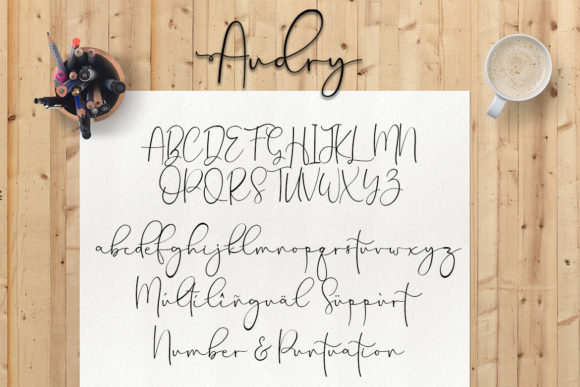 Audry
ABCDEFGHIJKLMN
OPQRSTUVWXYZ
abcdefghijklmnopqrstuvwxyz
Múltílîñguäl Süppùrt
Number & Puntuation